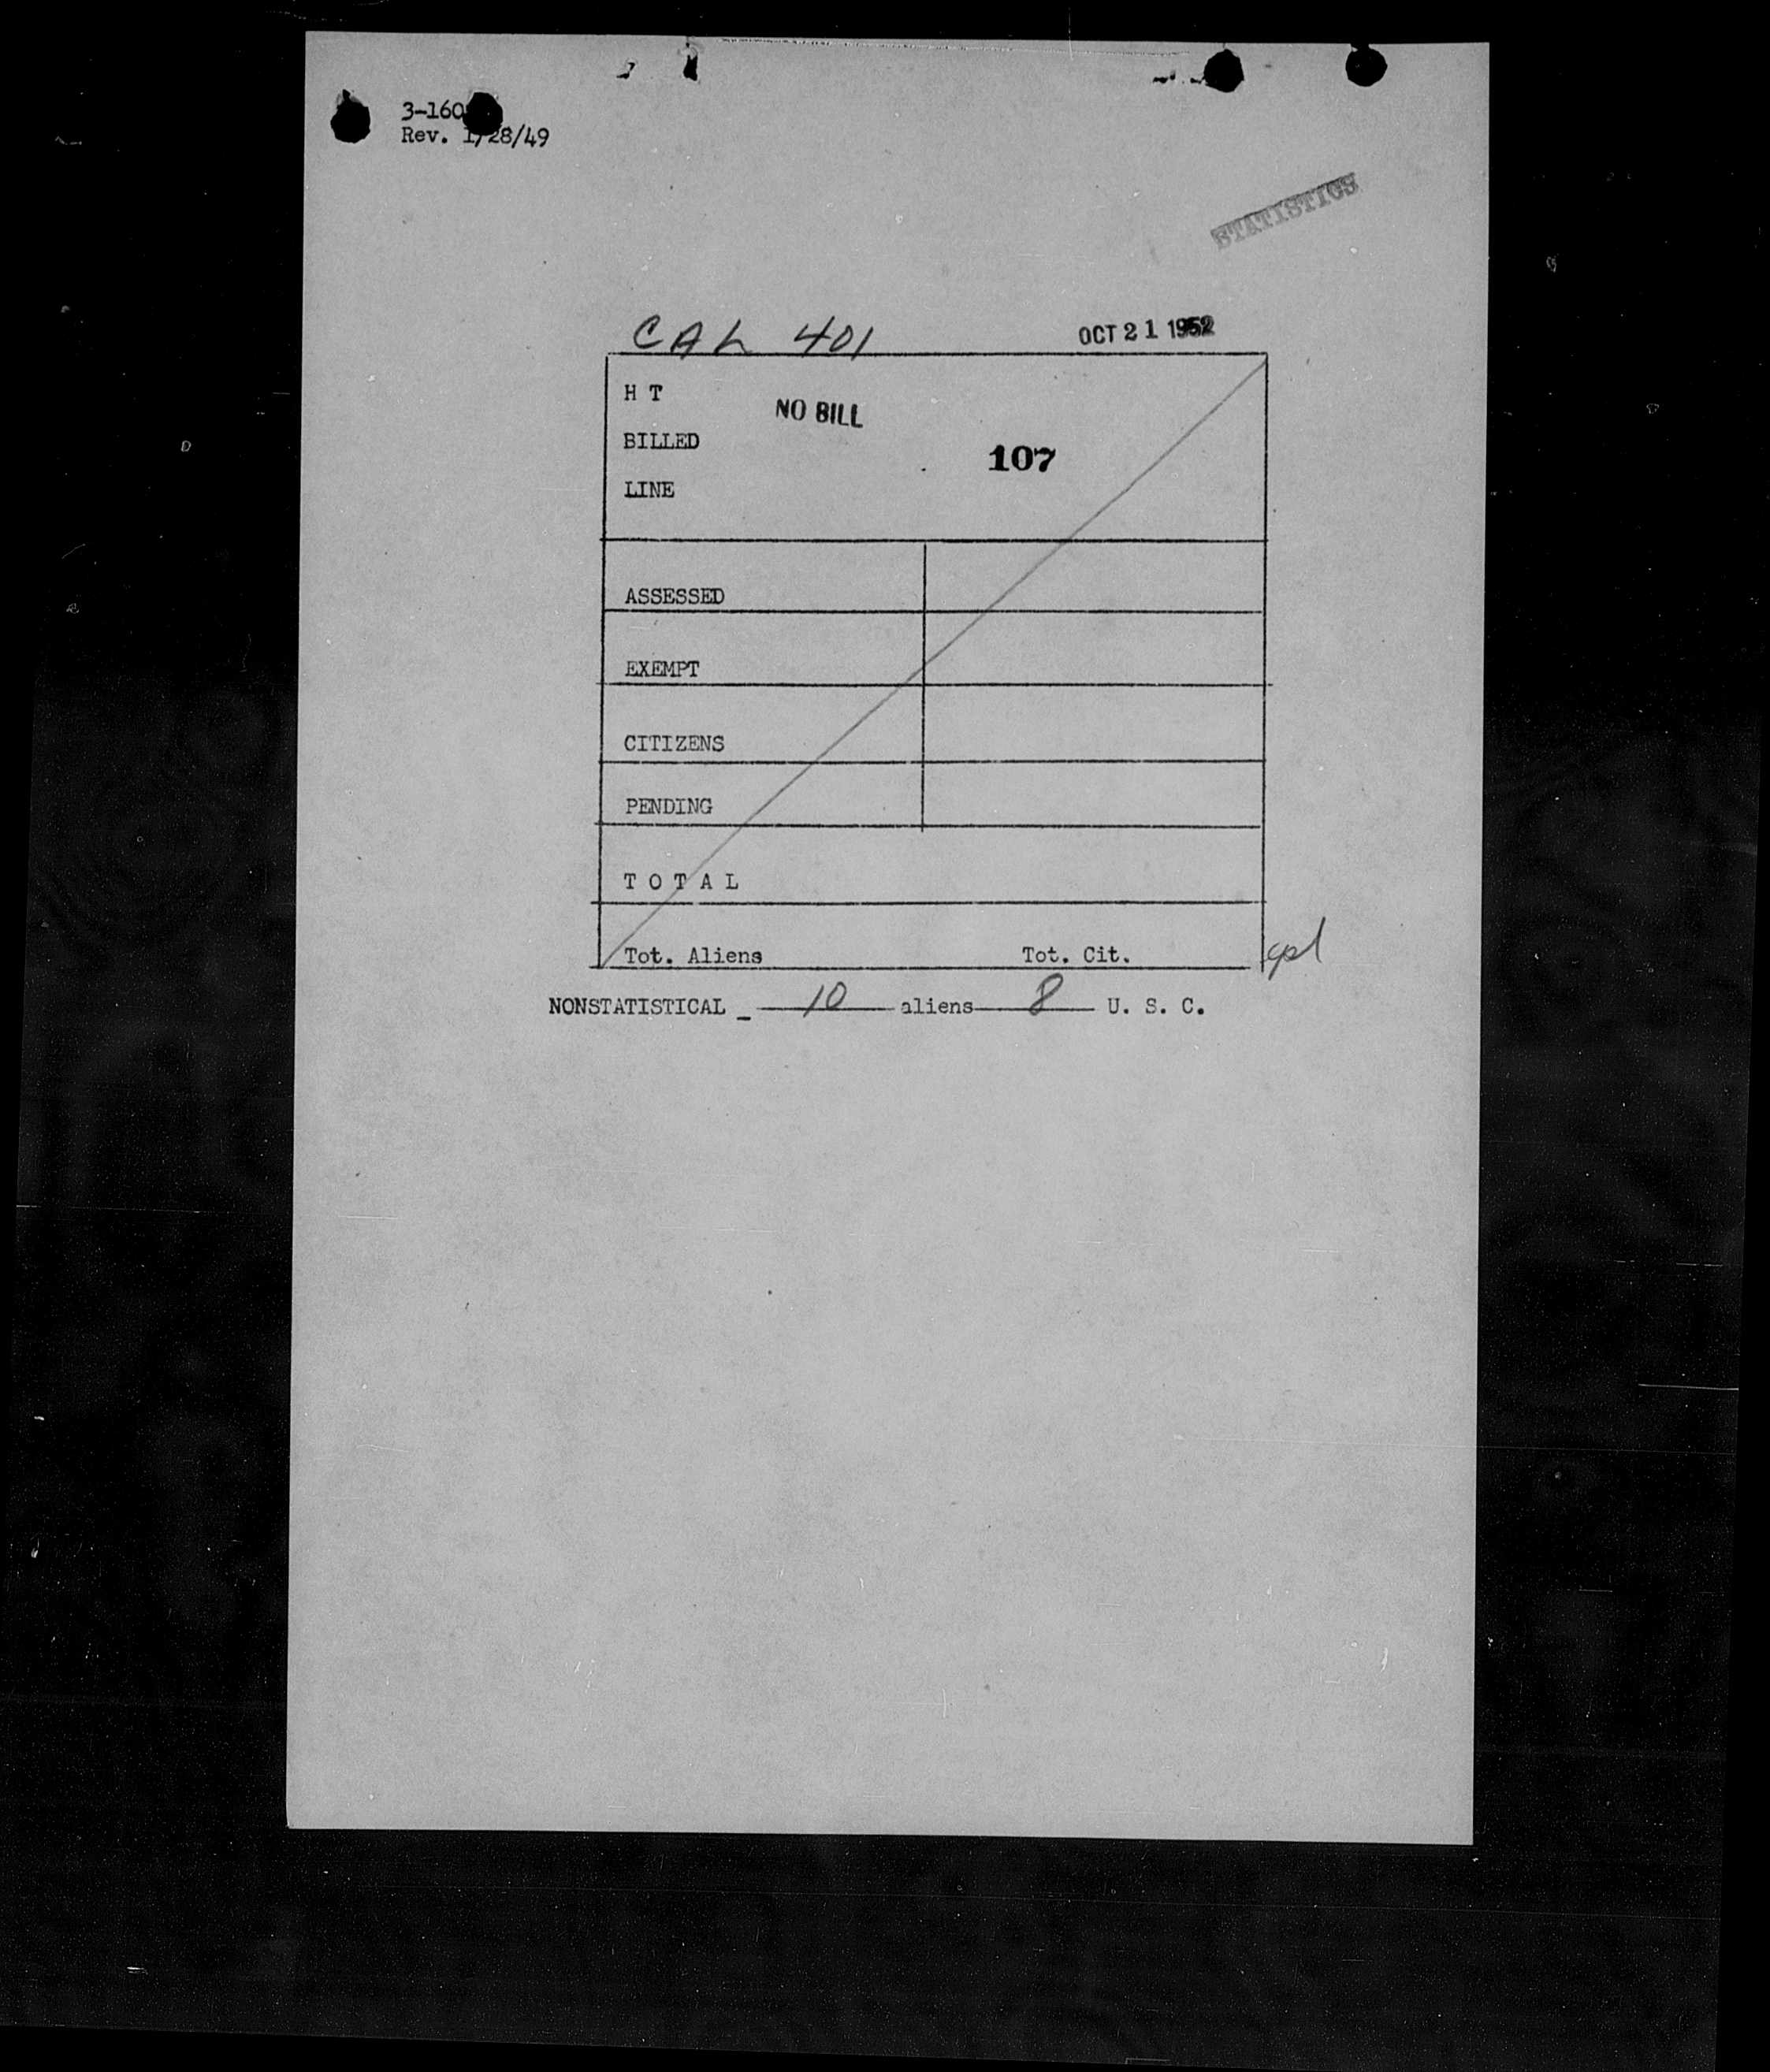 3-160
Rev. 1/28/49
STATISTICS
CAL 401
OCT 21 1952
H T
NO BILL
BILLED
107
LINE
ASSESSED
EXEMPT
CITIZENS
PENDING
T O T A L
Tot. Aliens Tot. Cit.
NONSTATISTICAL _ 10 aliens 8 U. S. C.